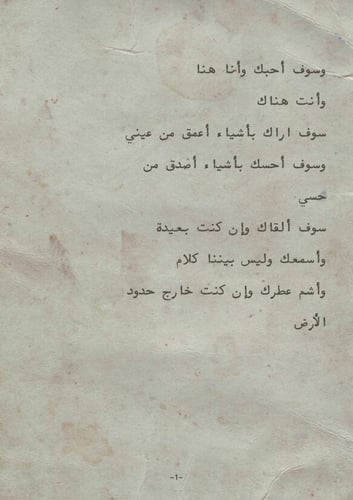 وسوف أحبك وأنا هنا
وأنت هناك
سوف اراك بأشياء أعمق من عيني
وسوف أحسك بأشياء أصدق من
حسي
سوف ألقاك وإن كنت بعيدة
وأسمعك وليس بيننا كلام
وأشم عطرك وإن كنت خارج حدود
الأرض
-1-